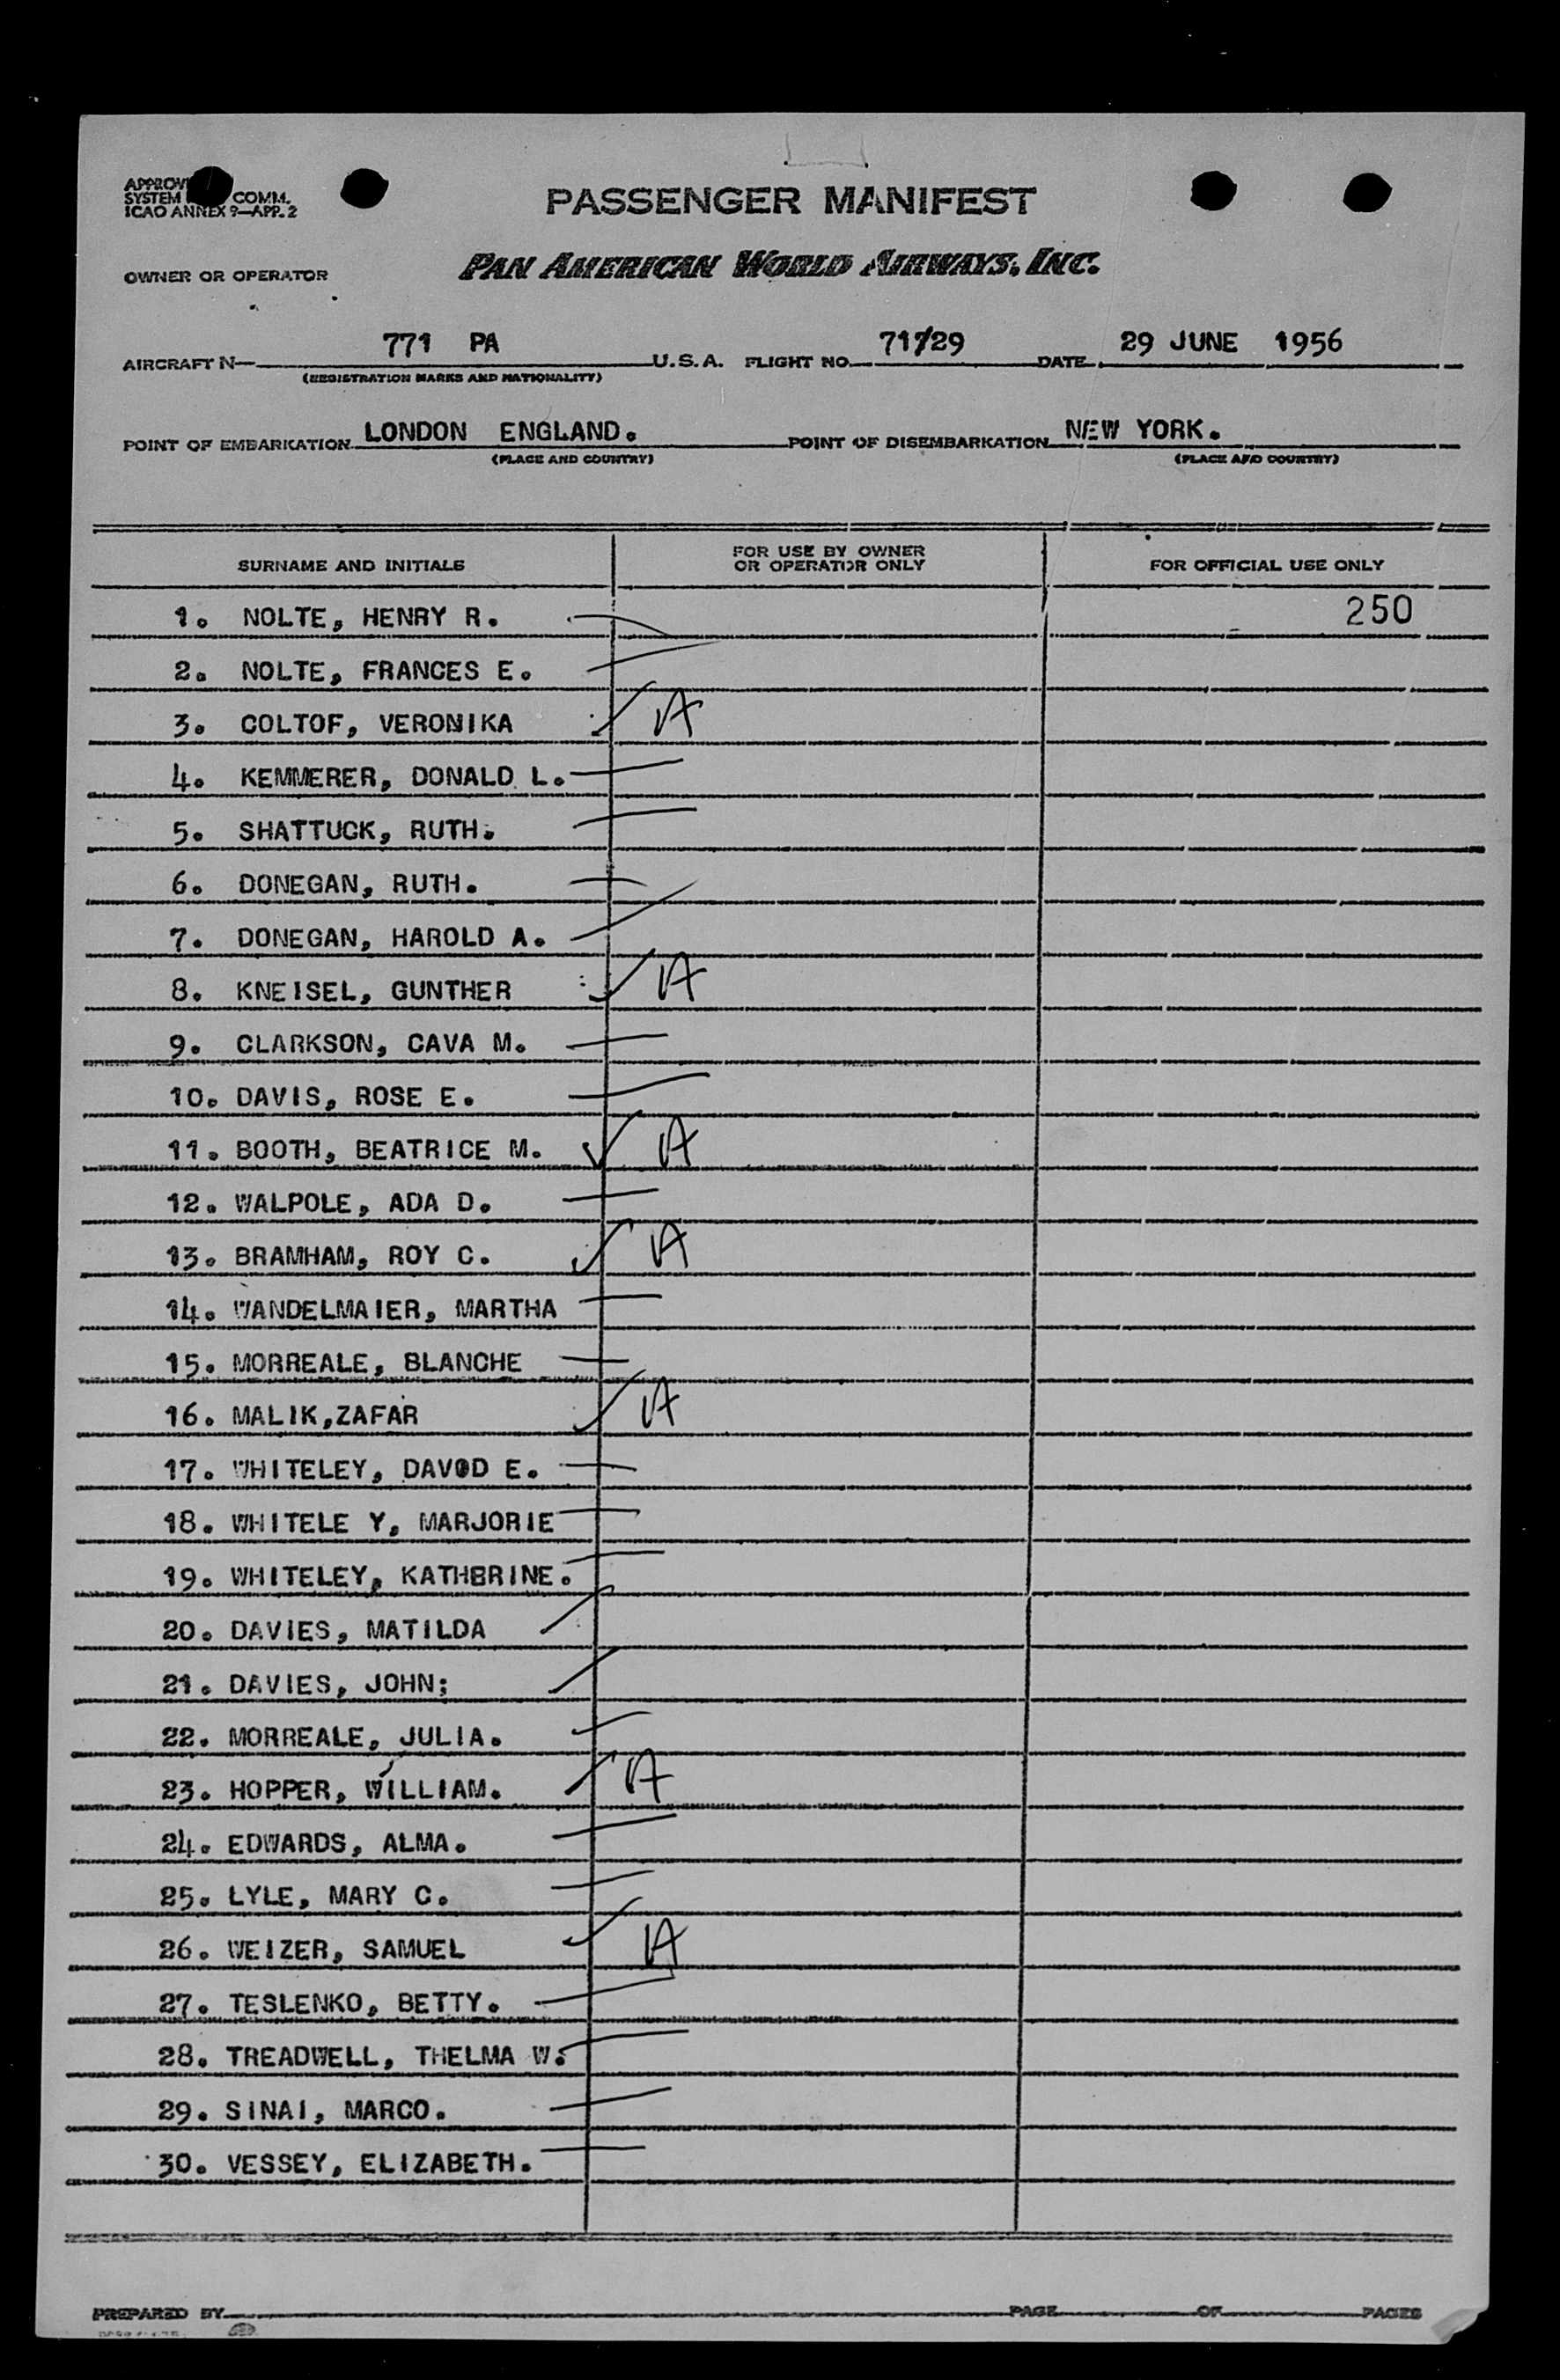 APPROV
SYSTEM COMM.
ICAO ANNEX 9—APP. 2
PASSENGER MANIFEST
OWNER OR OPERATOR PAN AMERICAN WORLD AIRWAYS, INC.
AIRCRAFT N— 771 PA U.S.A. FLIGHT NO. 71/29 DATE 29 JUNE 1956
(REGISTRATION MARKS AND NATIONALITY)
POINT OF EMBARKATION LONDON ENGLAND. POINT OF DISEMBARKATION NEW YORK.
(PLACE AND COUNTRY) (PLACE AND COUNTRY)
SURNAME AND INITIALS FOR USE BY OWNER OR OPERATOR ONLY FOR OFFICIAL USE ONLY
1. NOLTE, HENRY R. 250
2. NOLTE, FRANCES E.
3. COLTOF, VERONIKA A
4. KEMMERER, DONALD L.
5. SHATTUCK, RUTH.
6. DONEGAN, RUTH.
7. DONEGAN, HAROLD A.
8. KNEISEL, GUNTHER A
9. CLARKSON, CAVA M.
10. DAVIS, ROSE E.
11. BOOTH, BEATRICE M. A
12. WALPOLE, ADA D.
13. BRAMHAM, ROY C. A
14. WANDELMAIER, MARTHA
15. MORREALE, BLANCHE
16. MALIK,ZAFAR A
17. WHITELEY, DAVOD E.
18. WHITELE Y, MARJORIE
19. WHITELEY, KATHERINE.
20. DAVIES, MATILDA
21. DAVIES, JOHN;
22. MORREALE, JULIA.
23. HOPPER, WILLIAM. A
24. EDWARDS, ALMA.
25. LYLE, MARY C.
26. WEIZER, SAMUEL A
27. TESLENKO, BETTY.
28. TREADWELL, THELMA W.
29. SINAI, MARCO.
30. VESSEY, ELIZABETH.
PREPARED BY PAGE OF PAGES